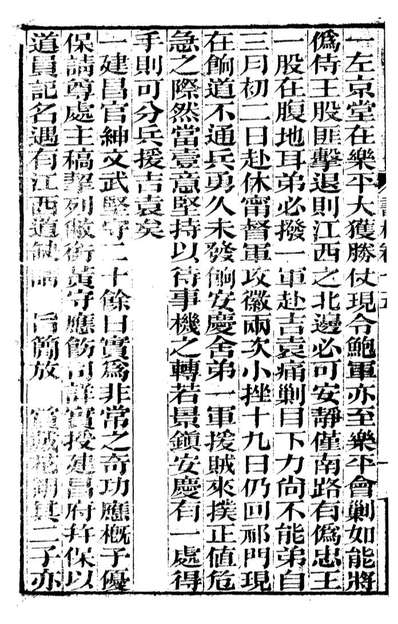 一左京堂在樂平大獲勝仗現令鮑軍亦至樂平會剿如能將
偽侍王股匪擊退則江西之北邊必可安靜僅南路有偽忠王
一股在腹地耳弟必撥一軍赴吉袁痛剿目下力尚不能弟自
三月初二日赴休甯督軍攻徽兩次小挫十九日仍回祁門現
在餉道不通兵勇久未發餉安慶舍弟一軍援賊來撲正值危
急之際然當壹意堅持以待事機之轉若景鎮安慶有一處得
手則可分兵援吉袁矣
一建昌官紳文武堅守二十餘日實為非常之奇功應概予優
保請尊處主稿挈列敝銜黃守應飭司詳實授建昌府幷保以
道員記名遇有江西道缺請 旨簡放 其二子亦